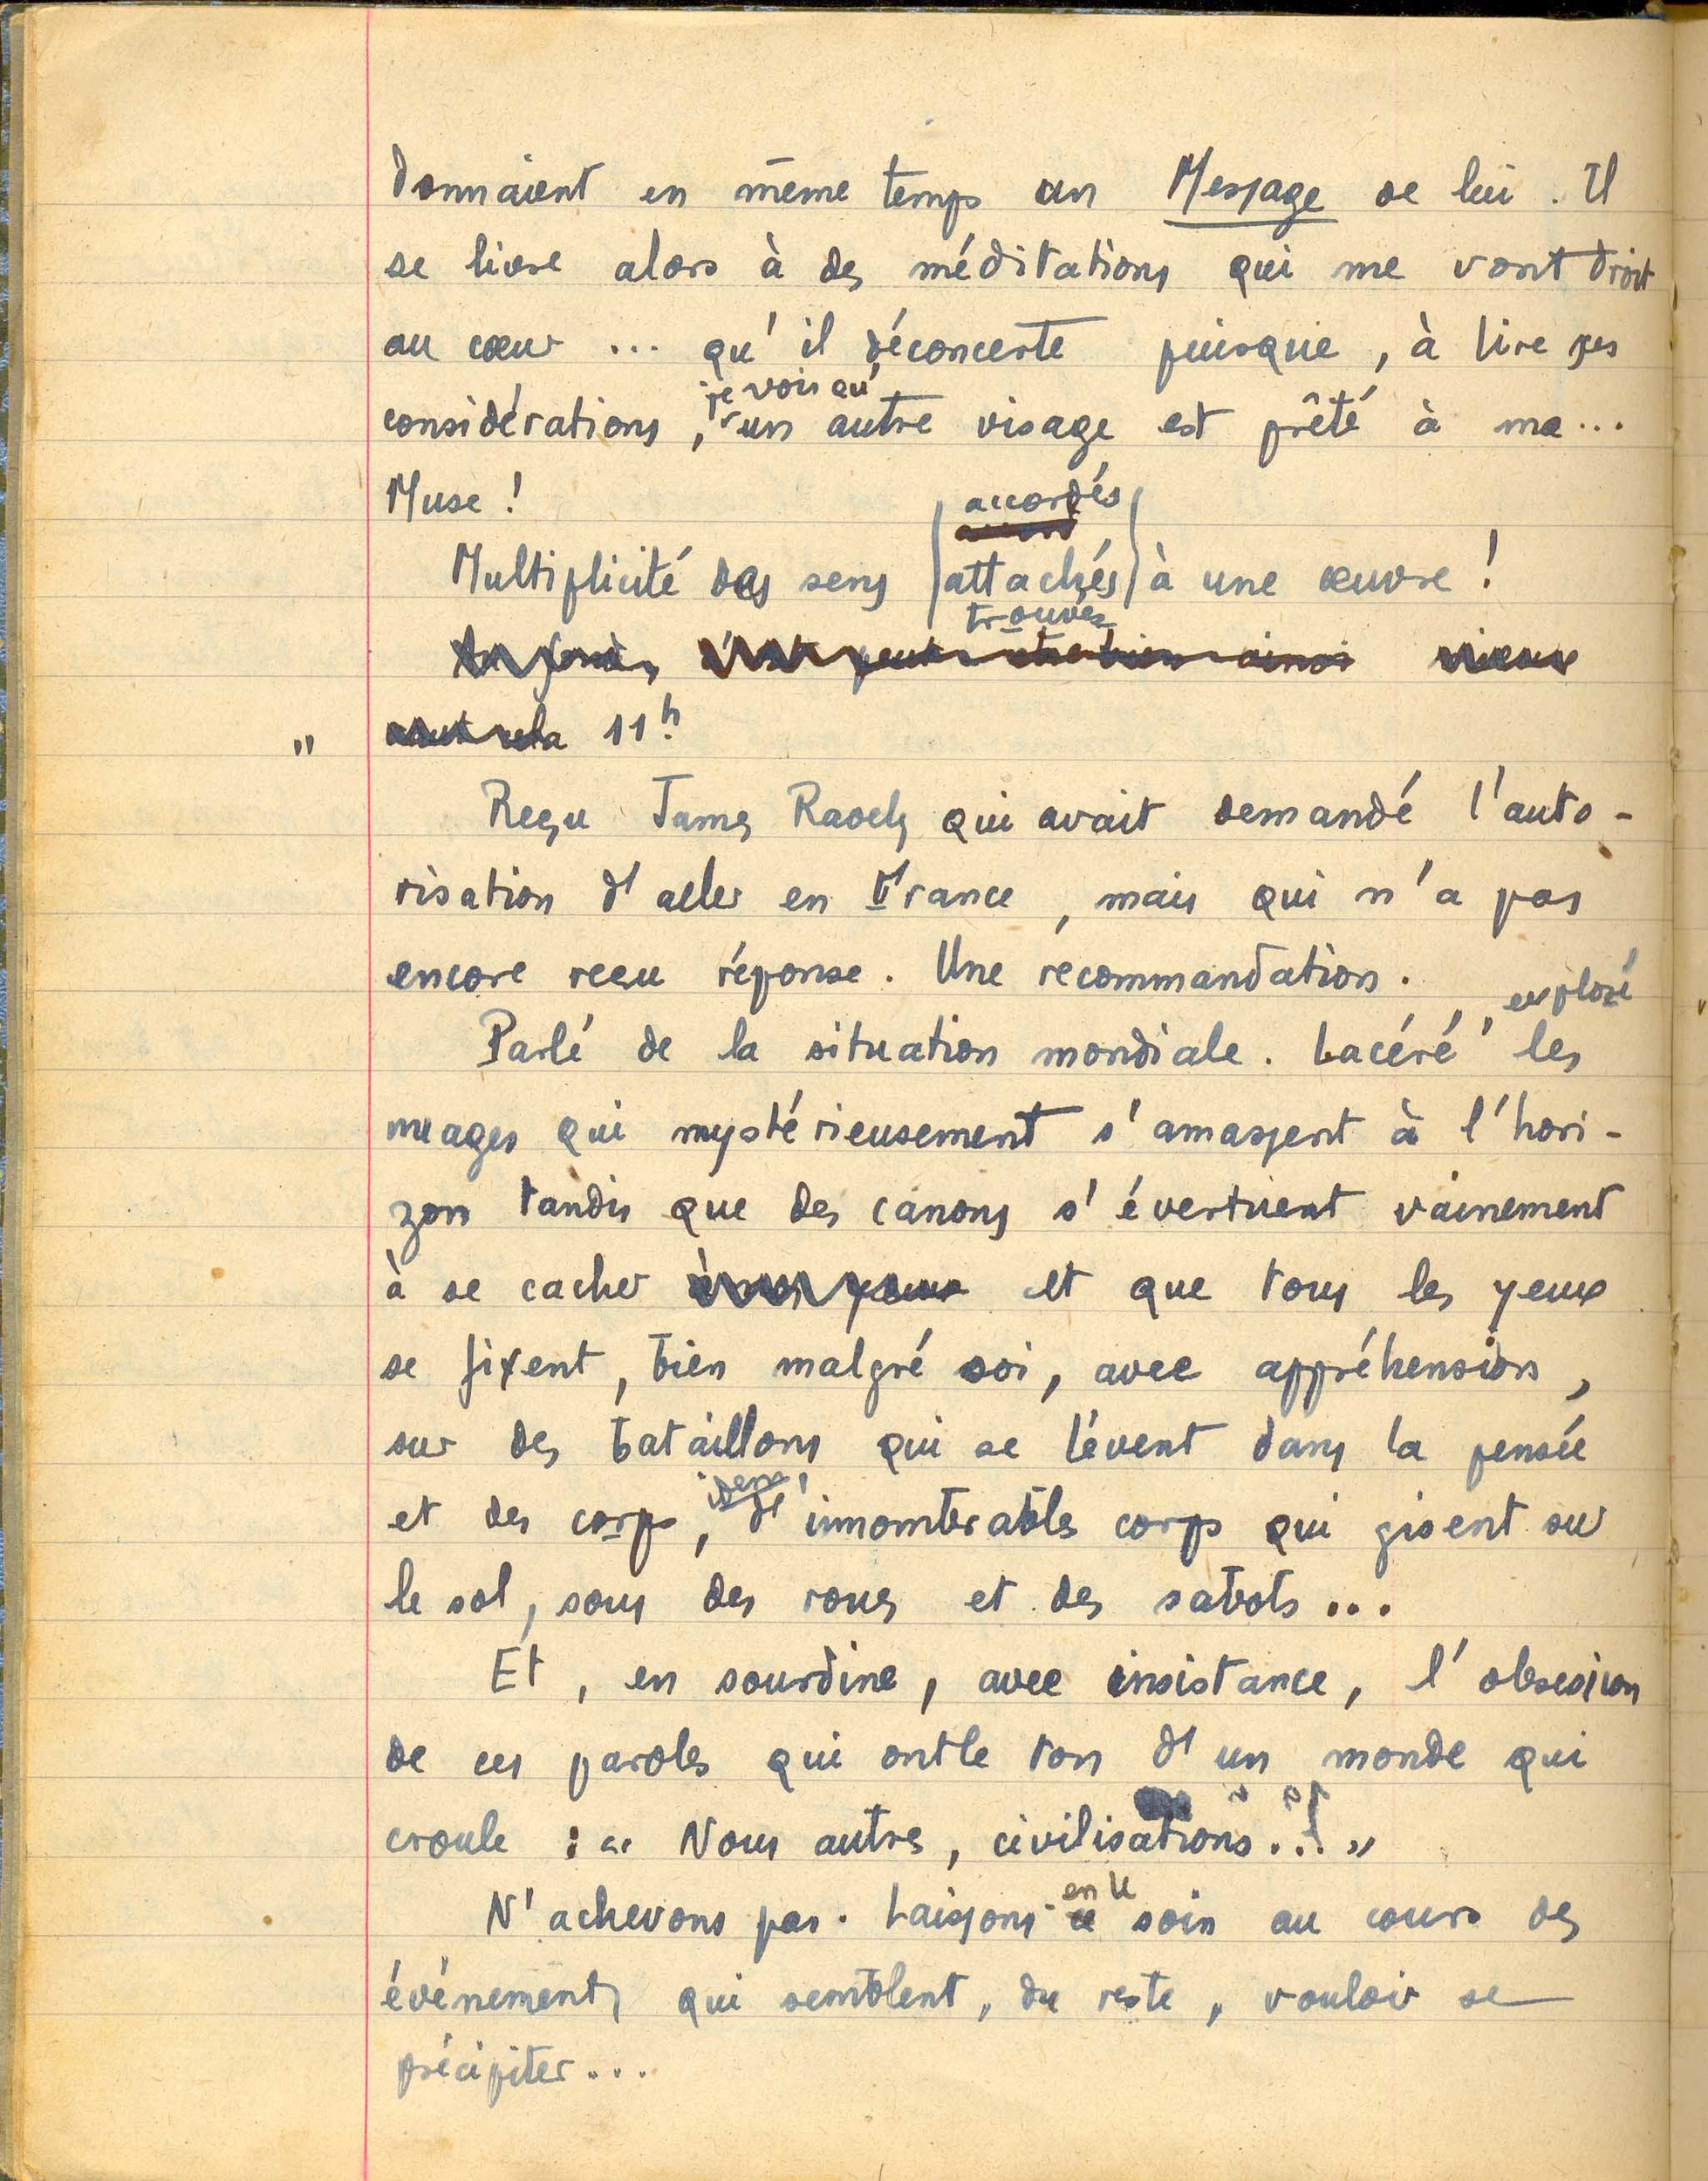 donnaient en même temps un Message de lui. Il
se livre alors à des méditations qui me vont droit
au cœur ... qu'il déconcerte puisque, à lire ses
je vois qu'
considérations, un autre visage est prêté à ma...
Muse !
accordés
Multiplicité des sens (attachés) à une œuvre !
trouvés
Au fond, c'est peut-être bien ainsi mieux
" cela 11h.
Reçu James Raoely qui avait demandé l'auto-
risation d'aller en France, mais qui n'a pas
encore reçu réponse. Une recommandation.
, exploré
Parlé de la situation mondiale. Lacéré les
nuages qui mystérieusement s'amassent à l'hori-
zon tandis que des canons s'évertuent vainement
à se cacher et que tous les yeux
se fixent, bien malgré soi, avec appréhension,
sur des bataillons qui se lèvent dans la pensée
idem,
et des corps, d'innombrables corps qui gisent sur
le sol, sous des roues et des sabots...
Et, en sourdine, avec insistance, l'obsession
de ces paroles qui ont le ton d'un monde qui
croule : « Nous autres, civilisations...! »
en le
N'achevons pas. Laissons ce soin au cours des
événements qui semblent, du reste, vouloir se
précipiter...